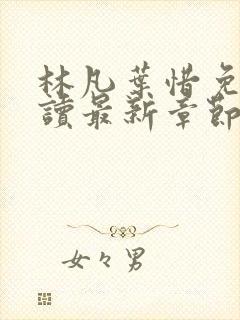 林凡葉惜免
讀最新章節
女々男